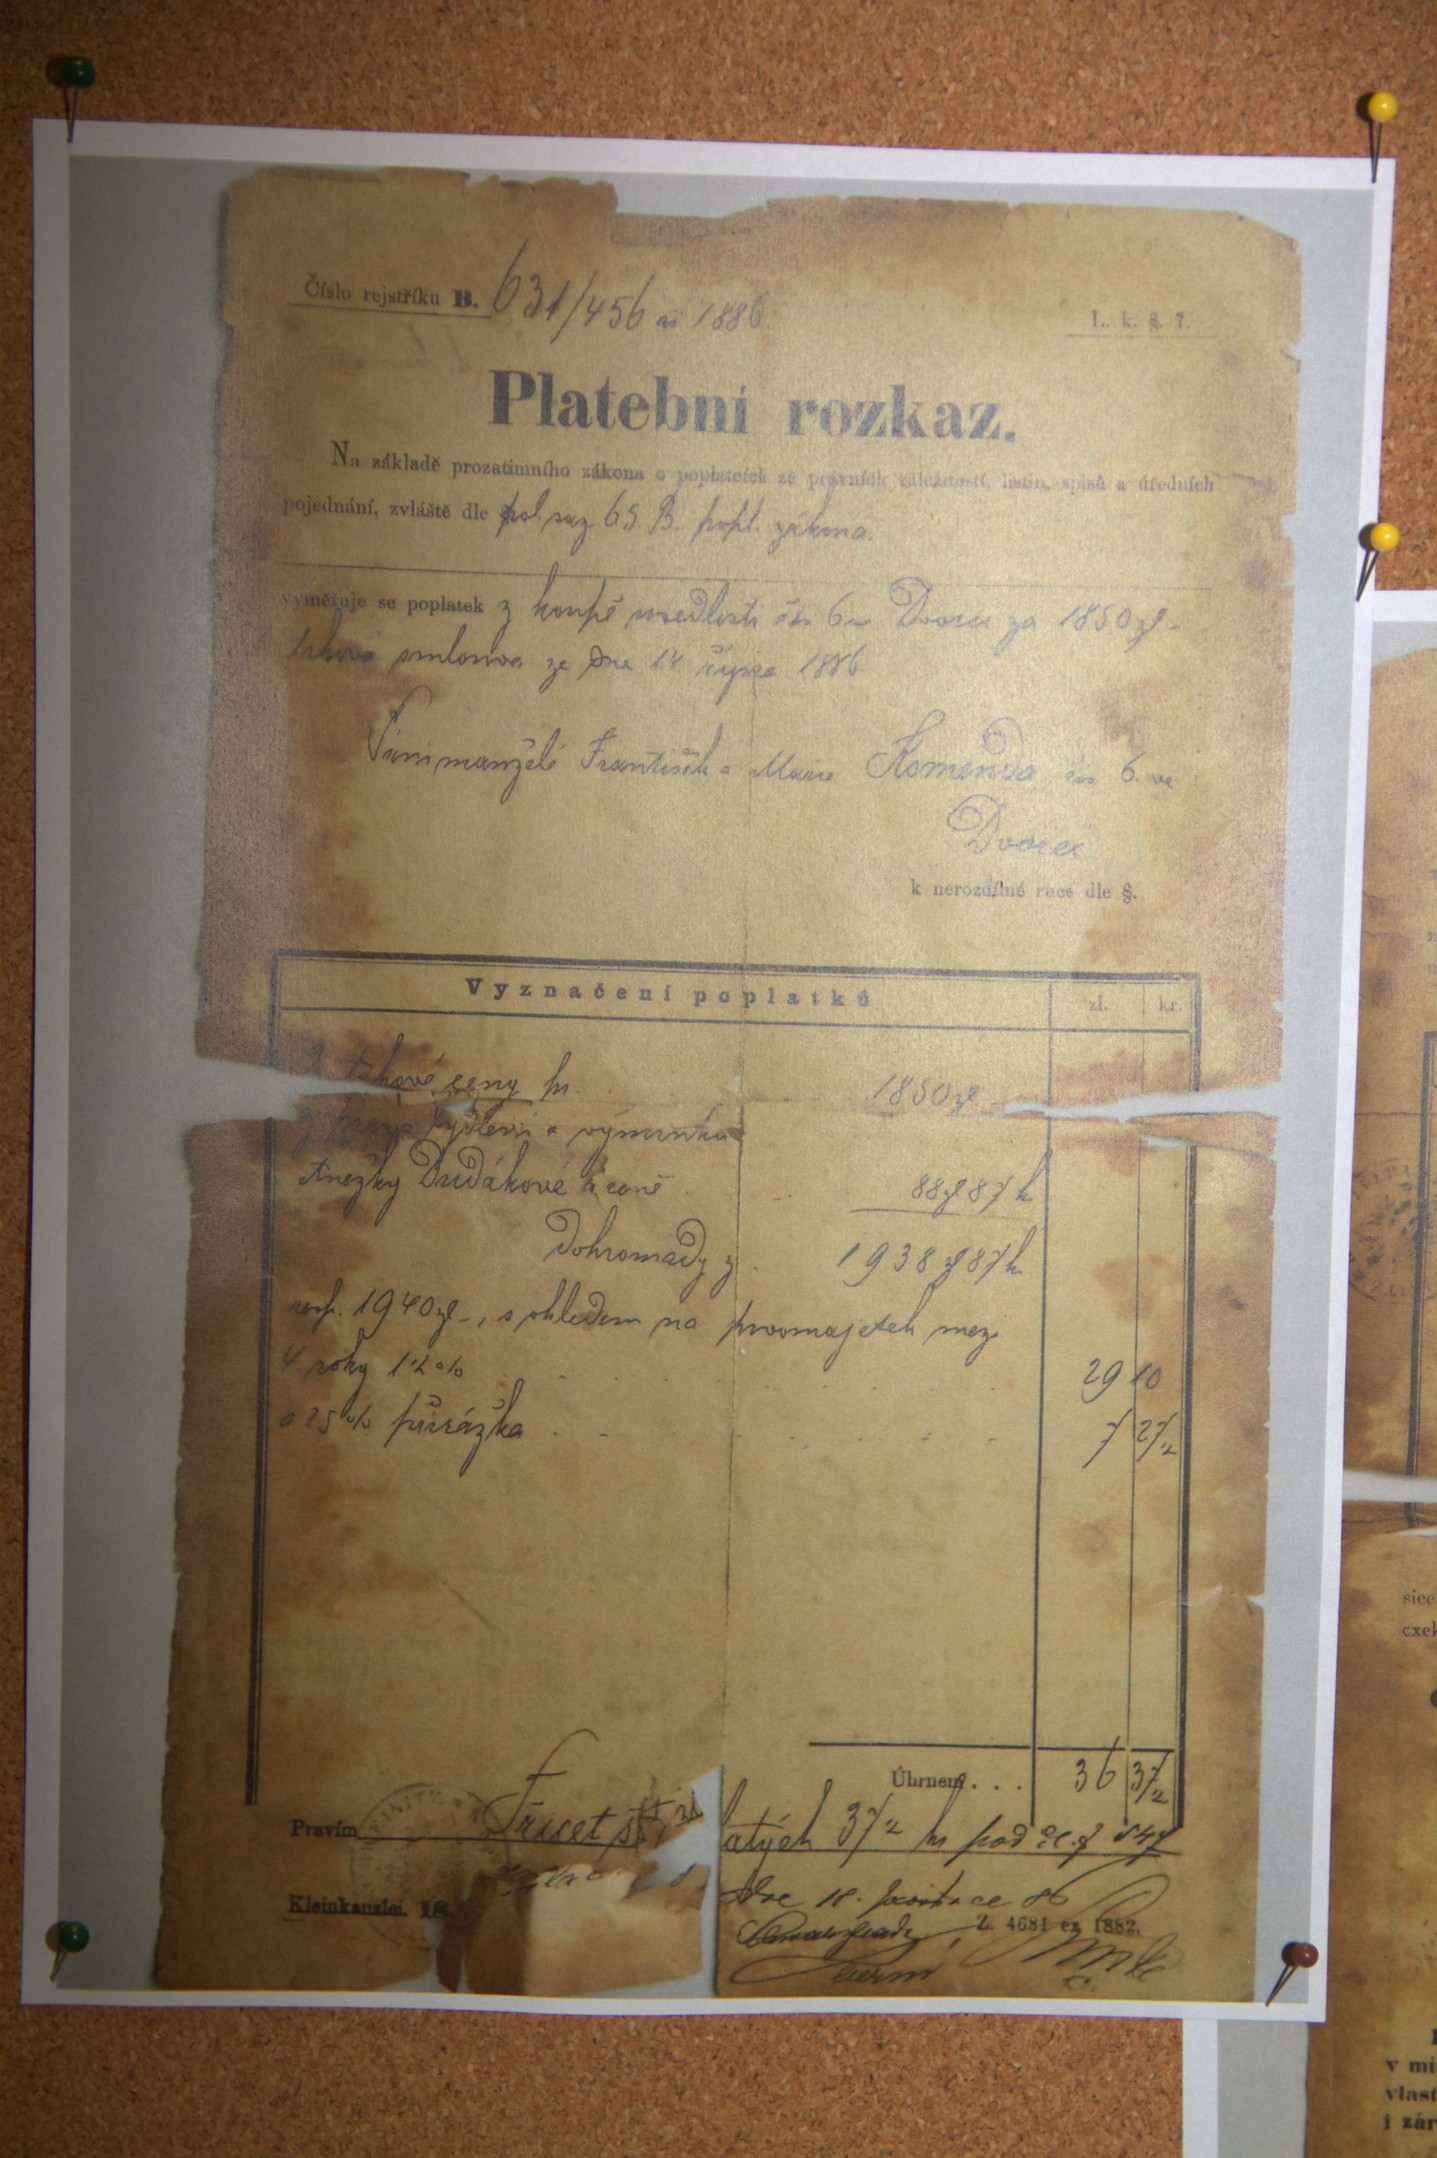 Číslo rejstříku B. 631/456 ai 1886.
I. k. §. 7.
Platební rozkaz.
Na základě prozatimního zákona o poplatcích ze právních záležitostí, listin, spisů a úředních
pojednání, zvláště dle pol. saz. 65 B. popl. zákona.
vyměřuje se poplatek z koupě usedlosti čís 6 Dvorec za 1850 zl
trhová smlouva ze dne 14 října 1886
Páni manželé František a Marie Komenda čís 6. ve
Dvorec
k nerozdílné ruce dle §.
Vyznačení poplatků zl. kr.
trhové ceny pr. 1850 zl
bydlení a výminku
Anežky Dudákové v ceně 88 zl 87 k
Dohromady z 1938 zl 87 k
resp. 1940 zl, s ohledem na prvomajetek mezi
4. roky 1 1/2 % 29 10
a 25% přirážka 7 27 1/2
Úhrnem . . . 36 37 1/2
Pravím Třicet šest zlatých 37 1/2 kr pod
Kleinkanzlei. 18.
dne 18. prosince 86
Z. 4681 ex 1882.
sice
v mi
vlast
i zár